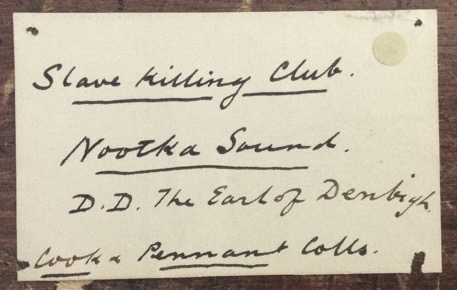 Slave Killing Club.
Nootka Sound.
D.D. The Earl of Denbigh.
Cook & Pennant Colls.